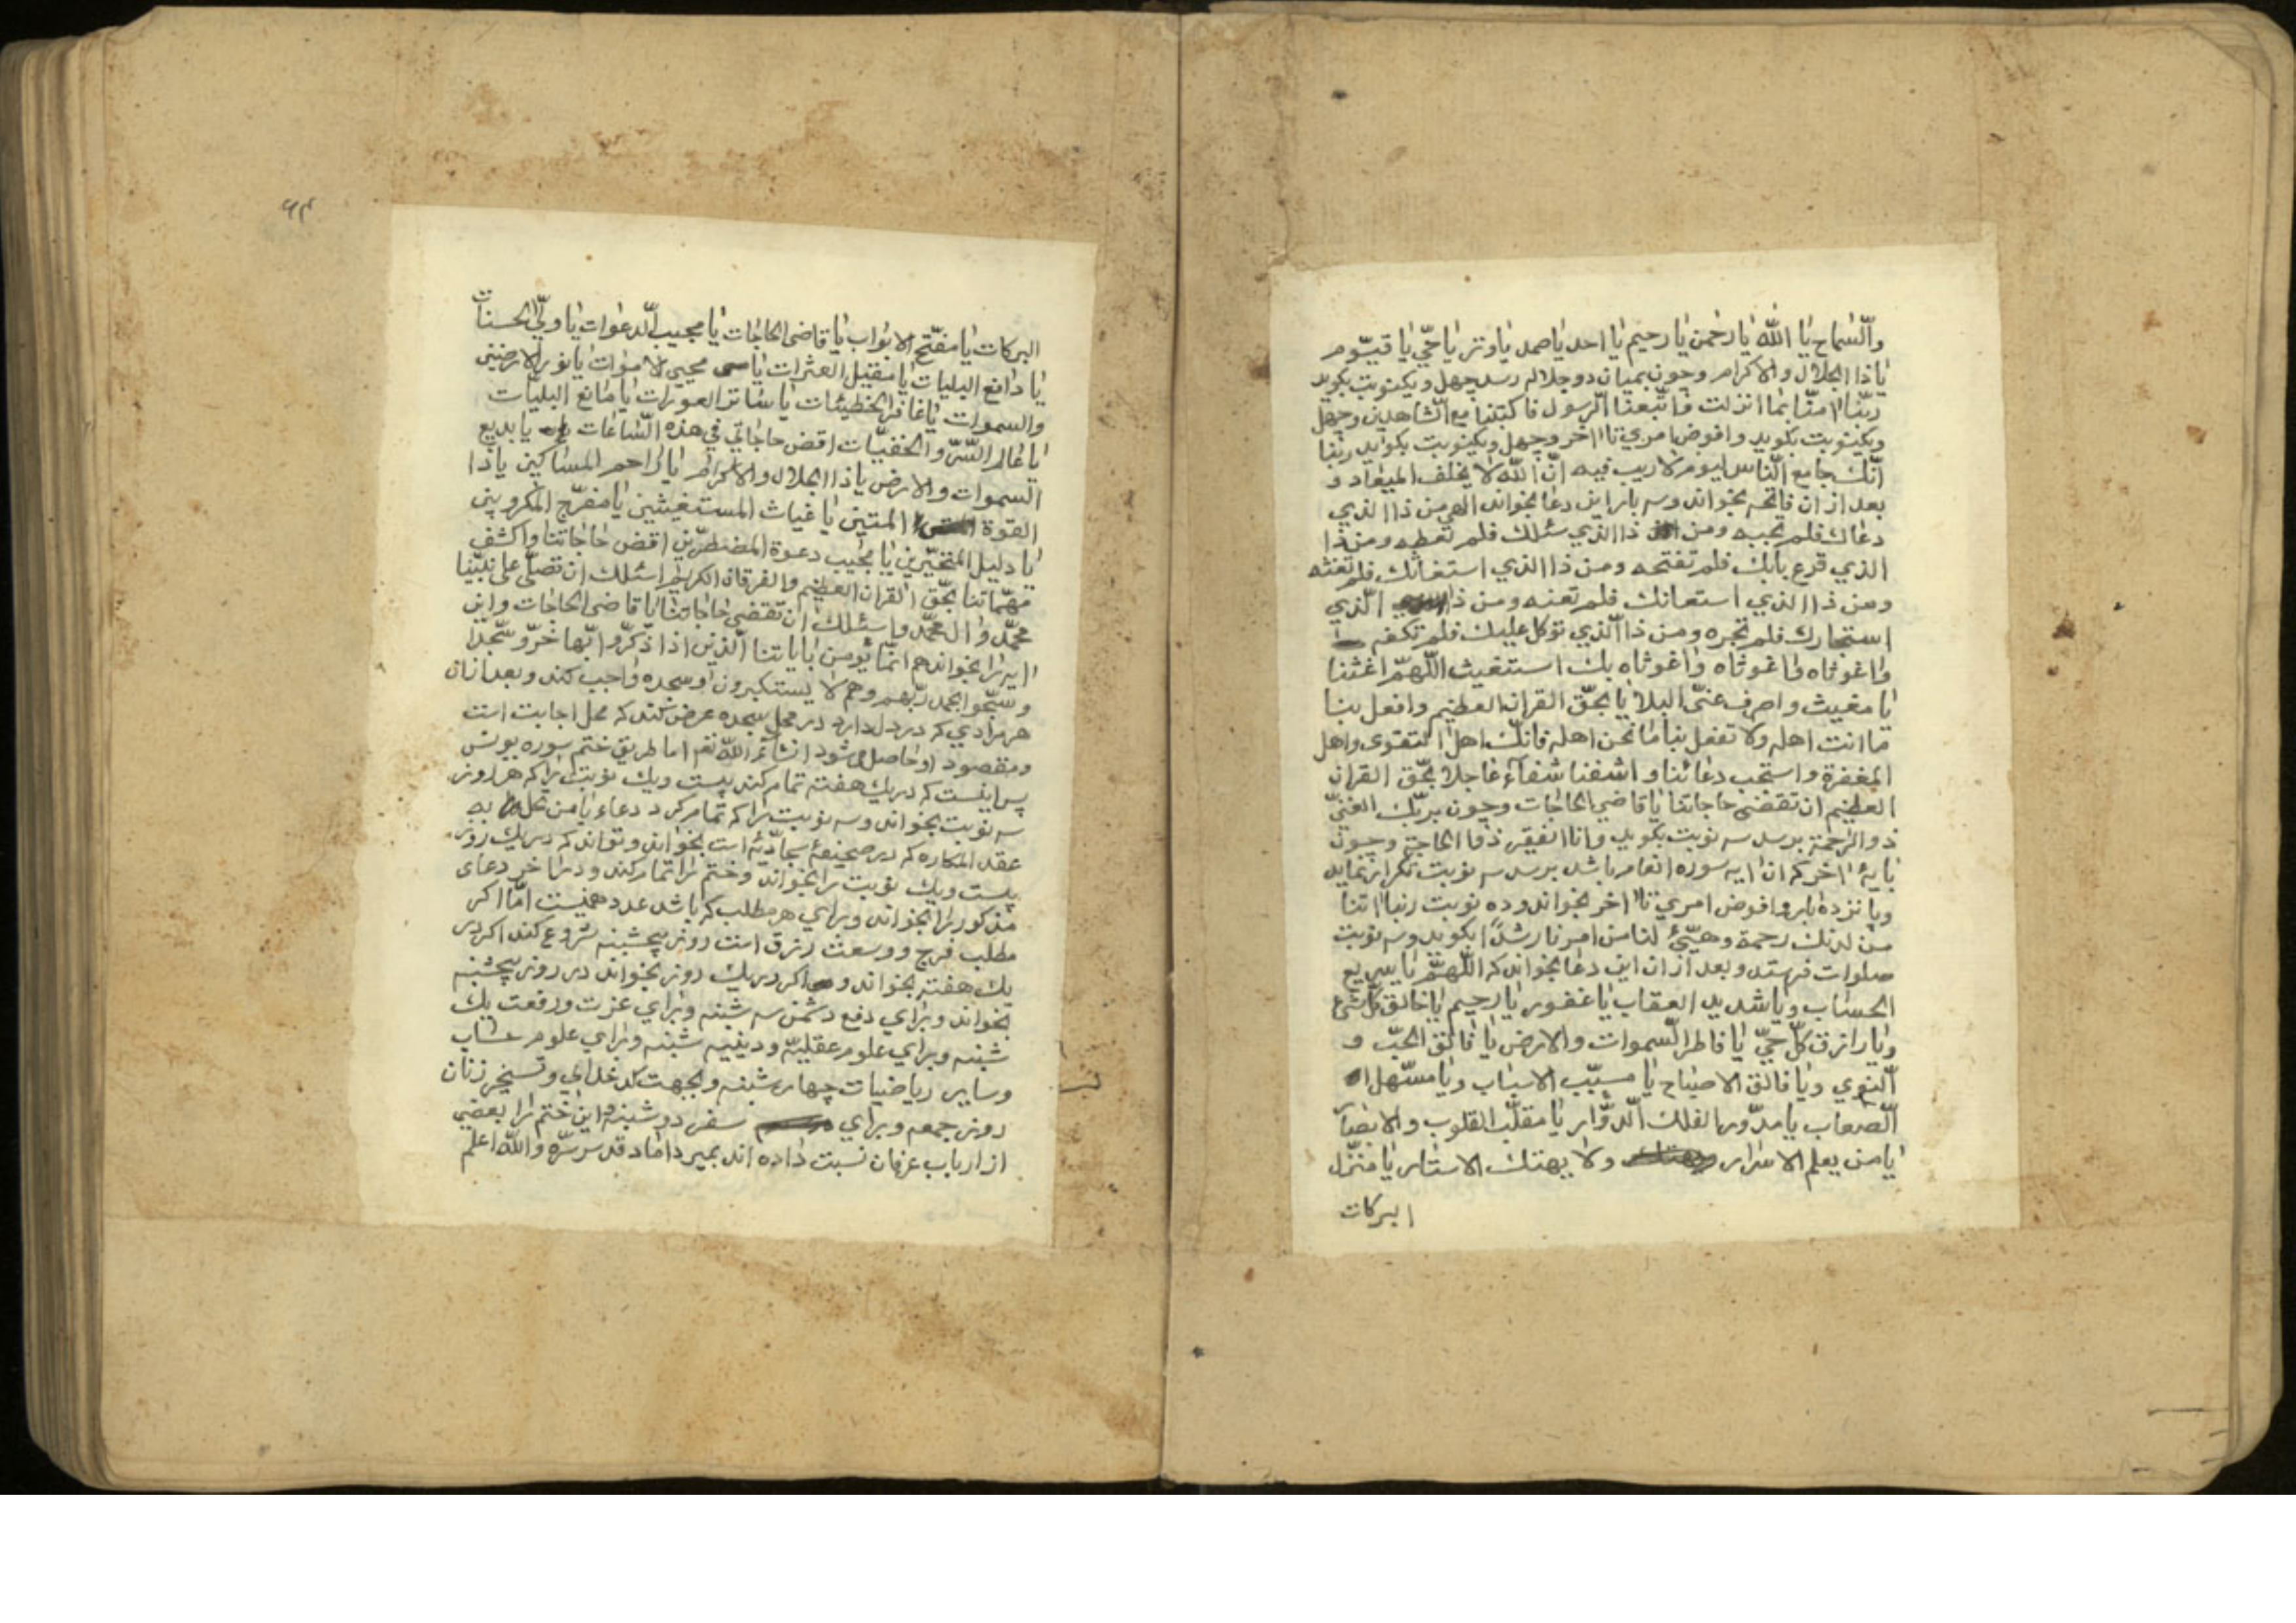 والسماح یا الله یا رحمن یا رحیم یا احد یا صمد یا وتر یا حی یا قیّوم
یا ذا الجلال والاکرام وچون بمیان دو جلاله رسد چهل ویکنوبت بکوید
ربّنا امنّا بما انزلت واتّبعنا الرسول فاکتبنا مع الشاهدین وچهل
ویکنوبت بکوید وافوض امری تا اخر وچهل ویکنوبت بکوید ربنا
انّک جامع النّاس لیوم لاریب فیه انّ الله لا یخلف المیعاد و
بعد از ان فاتحه بخواند وسه بار این دعا بخواند الهی من ذا الذی
دعاک فلم تجبه ومن ذا الذی سئلک فلم تعطه ومن ذا
الذی قرع بابک فلم تفتحه ومن ذا الذی استغاثک فلم تغثه
ومن ذا الذی استعانک فلم تعنه ومن ذا الّذی
استجارک فلم تجره ومن ذا الّذی توکل علیک فلم تکفه
واغوثاه واغوثاه واغوثاه بک استغیث اللّهمّ اغثنا
یا مغیث واصرف عنّی البلایا بحقّ القران العظیم وافعل بنا
ما انت اهله ولا تفعل بنا ما نحن اهله فانّک اهل التقوی واهل
المغفرة واستجب دعائنا واشفنا شفآءً عاجلا بحّق القران
العظیم ان تقضی حاجاتنا یا قاضی الحاجات وچون بربّک الغنیّ
ذو الرحمة برسد سه نوبت بکوید وانا الفقیر ذو الحاجة وچون
بایهٔ اخر که ان ایه سوره انعام باشد برسد سه نوبت تکرار نماید
وپانزده بار وافوض امری تا اخر بخواند وده نوبت ربنا اتنا
من لدنک رحمة وهیّئ لنا من امرنا رشداً بکوید وسه نوبت
صلوات فرستد وبعد از ان این دعا بخواند که اللّهمّ یا سریع
الحساب ویا شدید العقاب یا غفور یا رحیم یا خالق کلّ شئ
ویا رازق کلّ حیّ یا فاطر السّموات والارض یا فالق الحبّ و
النوی ویا فالق الاصباح یا مسبّب الاسباب ویا مسّهل
الصعاب یا مدّور الفلک الدّوّار یا مقلّب القلوب والابصار
یا من یعلم الاسرار ولا یهتک الاستار یا منزّل
البرکات
۶۴
البرکات یا مفتّح الابواب یا قاضی الحاجات یا مجیب الدعوات یا ولیّ الحسنات
یا دافع البلیات یا مقیل العثرات یا محیی الاموات یا نور الارضین
والسموات یا غافر الخطیئات یا ساتر العورات یا مانع البلیات
یا عالم السّرّ والخفیّات اقض حاجاتی فی هذه السّاعات یا بدیع
السموات والارض یا ذا الجلال والاکرام یا راحم المساکین یا ذا
القوة المتین یا غیاث المستغیثین یا مفرّج المکروبین
یا دلیل المتحیّرین یا مجیب دعوة المضطرّین اقض حاجاتنا واکشف
مهّماتنا بحّق القران العظیم والفرقان الکریم اسئلک ان تصلّی علی نبیّنا
محمّد وال محمّد واسئلک ان تقضی حاجاتنا یا قاضی الحاجات واین
ایه را بخواند هم انّما یؤمن بایاتنا الّذین اذا ذکّروا بها خرّوا سّجدا
وسّبحوا بحمد ربّهم وهم لا یستکبرون وسجده واجب کند وبعد از ان
هر مرادی که در دل دارد در محل سجده عرض کند که محل اجابت است
ومقصود او حاصل می شود انشاءالله تعم اما طریق ختم سوره یونس
پس اینست که در یک هفته تمام کند بیست ویک نوبت را که هر روز
سه نوبت بخواند وسه نوبت را که تمام کرد دعاء یا من تحل به
عقد المکاره که در صحیفهٔ سجادّیّه است بخواند وتواند که در یک روز
بیست ویک نوبت را بخواند وختم را تمام کند ودر اخر دعای
مذکور را بخواند وبرای هر مطلب که باشد عدد همینست امّا اکر
مطلب فرج ووسعت رزق است روز پنجشبنه شروع کند اکر در
یک هفته بخواند و اکر در یک روز بخواند در روز پنجشبنه
بخواند وبرای دفع دشمن سه شبنه وبرای عزت ورفعت یک
شبنه وبرای علوم عقلیه ودینیه شبنه وبرای علوم حساب
وسایر ریاضیات چهار شبنه وبجهت کدخدای وتسخیر زنان
روز جمعه وبرای سفر دو شبنه واین ختم را بعضی
از ارباب عرفان نسبت داده اند بمیر داماد قدس سرّه والله اعلم